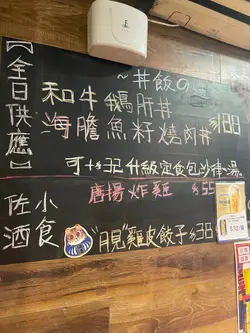 【全日供應】
~丼飯の
和牛鵝肝丼
海膽魚籽燒肉丼 $188
可+$32升級定食包沙律、湯
佐酒小食
唐揚炸雞 $55
"月見"雞皮餃子 $38